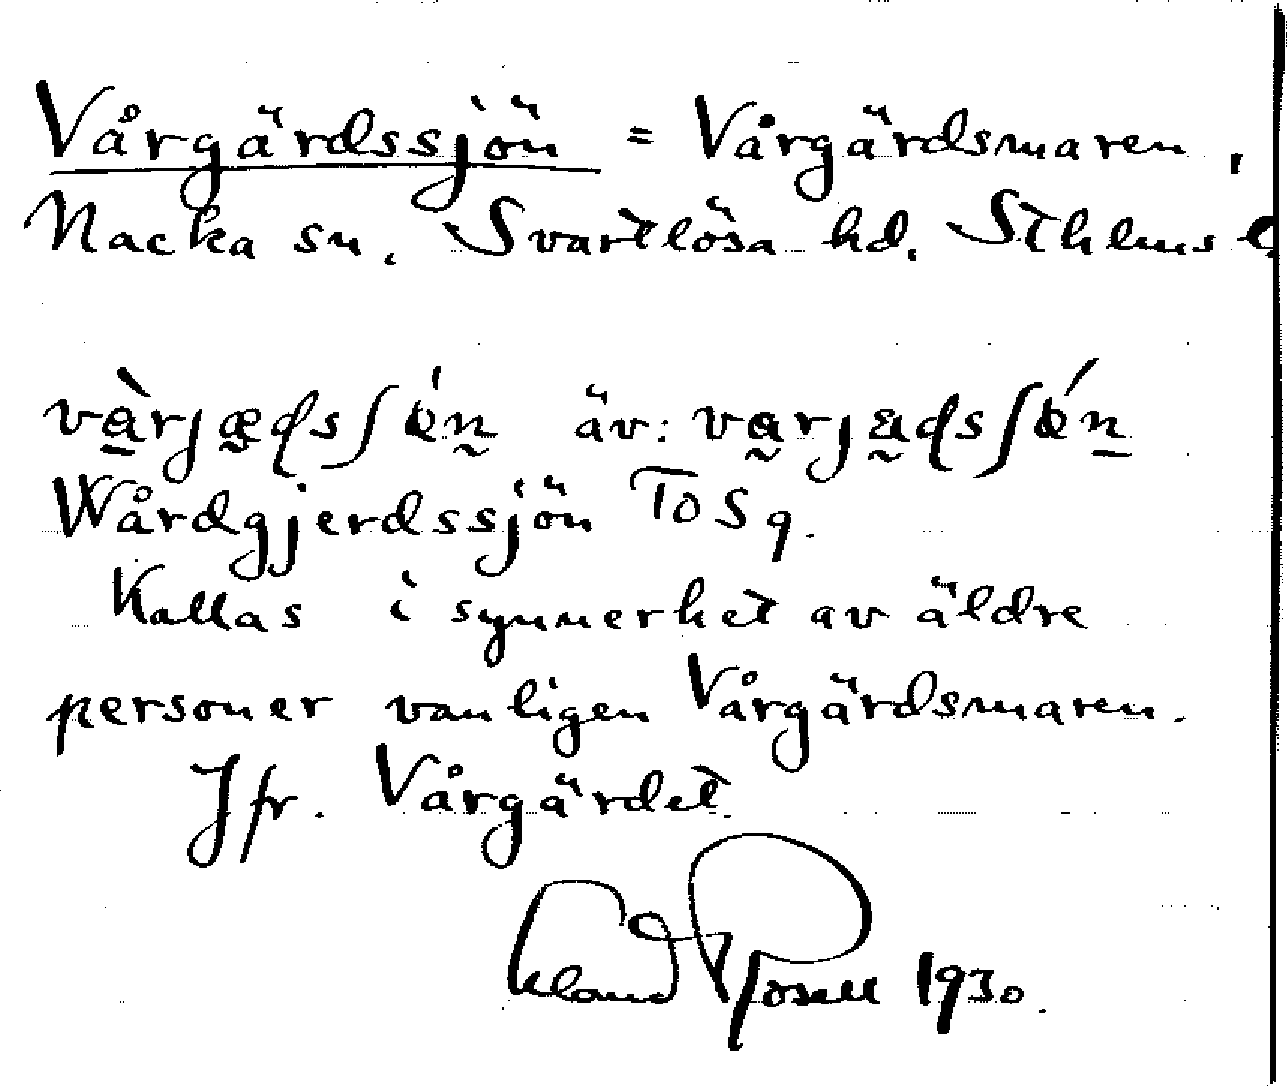 Vårgärdssjön = Vårgärdsmaren,
Nacka sn. Svartlösa hd. Sthlms
äv:
Wårdgjerdssjön TOSq.
Kallas i synnerhet av äldre
personer vanligen Vårgärdsmaren.
Jfr. Vårgärdet.
1930.